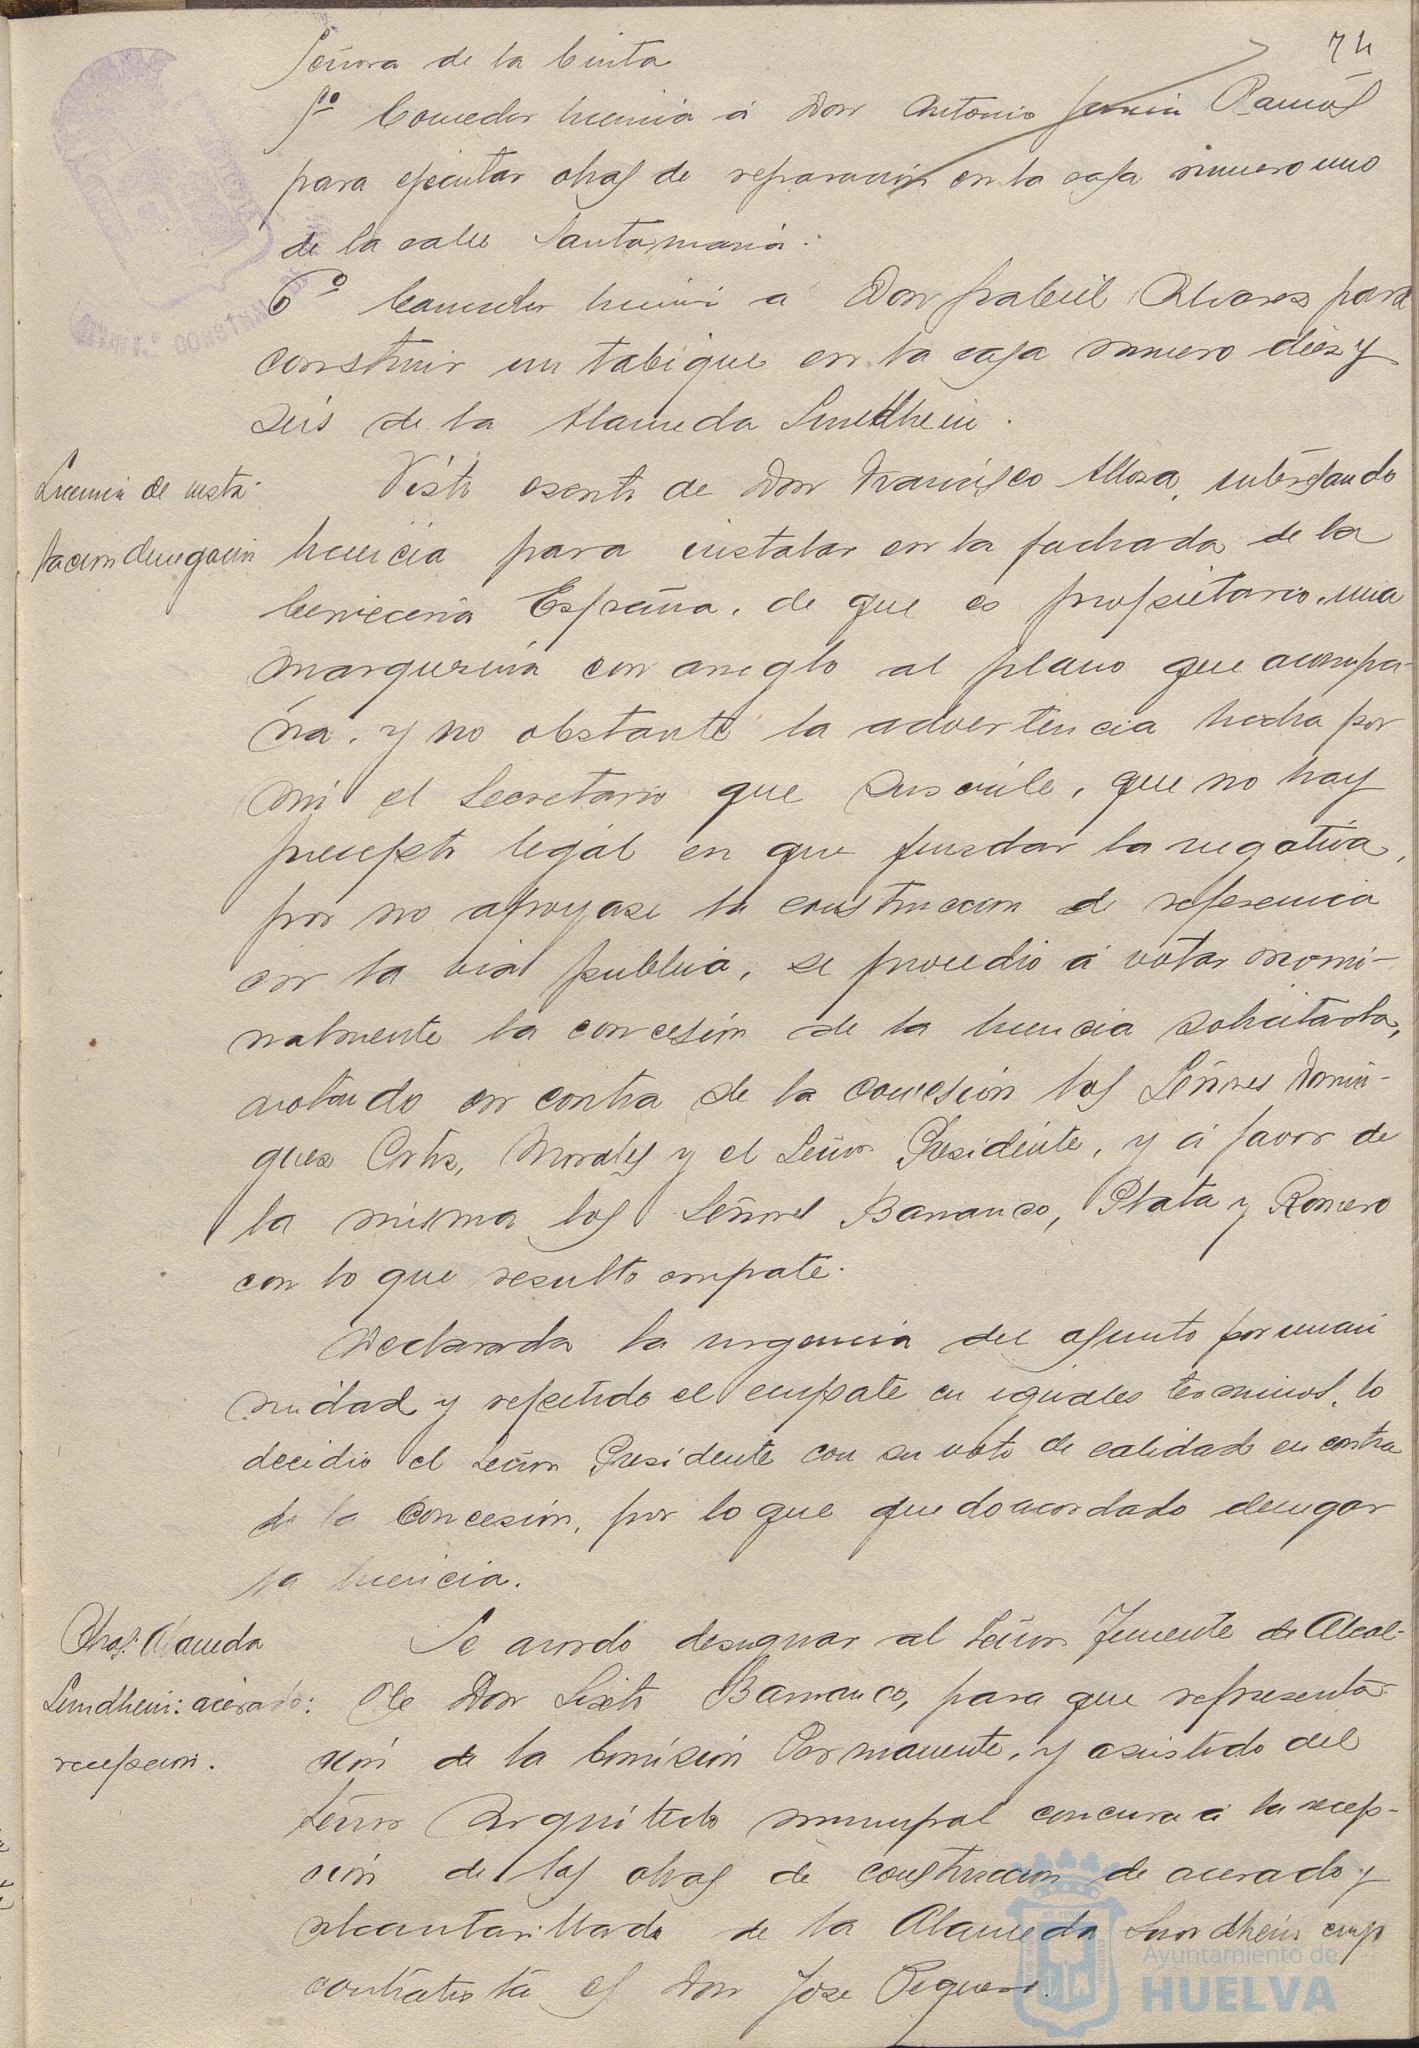 74
Señora de la Cinta
5º Conceder licencia á Don Antonio Ramos
para ejecutar obras de reparación en la casa número uno
de la calle Santa maria.
6º Conceder licencia a Don Gabriel Alvarez para
construir un tabique en la casa número diez y
seis de la Alameda Sundheim.
Licencia de insta-
lacion denegación
Visto escrito de Don Francisco Mora, interesando
licencia para instalar en la fachada de la
Cervecería España, de que es propietario, una
marquesina con arreglo al plano que acompa-
ña, y no obstante la advertencia hecha por
mi el Secretario que suscribe, que no hay
precepto legal en que fundar la negativa,
por no apoyarse la construccion de referencia
en la via publica, se procedio á votar nomi-
nalmente la concesión de la licencia solicitada,
votando en contra de la concesión los Señores Domin-
guez Ortiz, Morales y el Señor Presidente, y á favor de
la misma los Señores Barranco, Plata y Romero
con lo que resulto empate.
Declarada la urgencia del asunto por unani
midad y repetido el empate en iguales terminos, lo
decidio el Señor Presidente con su voto de calidad en contra
de la concesión, por lo que quedo acordado denegar
la licencia.
Obras: Alameda
Sundheim: acerado:
recepcion.
Se acordó designar al Señor Teniente de Alcal-
de Don Sixto Barranco, para que representa-
ción de la Comisión Permanente, y asistido del
Señor Arquitecto municipal concurra á la recep-
ción de las obras de construccion de acerado y
alcantarillado de la Alameda Sundheim cuyo
contratista es Don Jose Peguero.
Ayuntamiento de
HUELVA